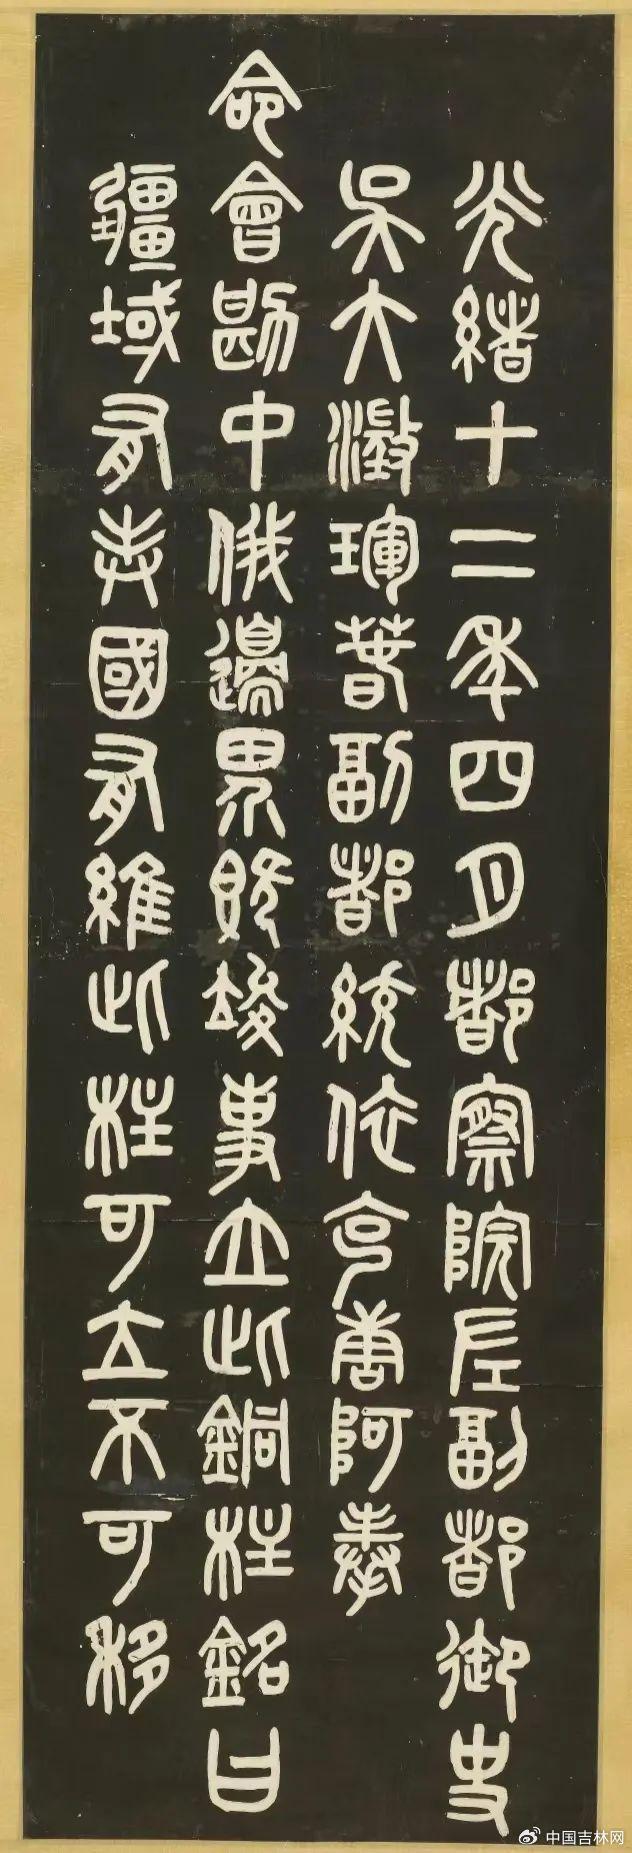 光緒十二年四月都察院左副都御史
吳大澂琿春副都統依克唐阿奉
命會勘中俄邊界既竣事立此銅柱銘曰
疆域有志國有維此柱可立不可移
中国吉林网